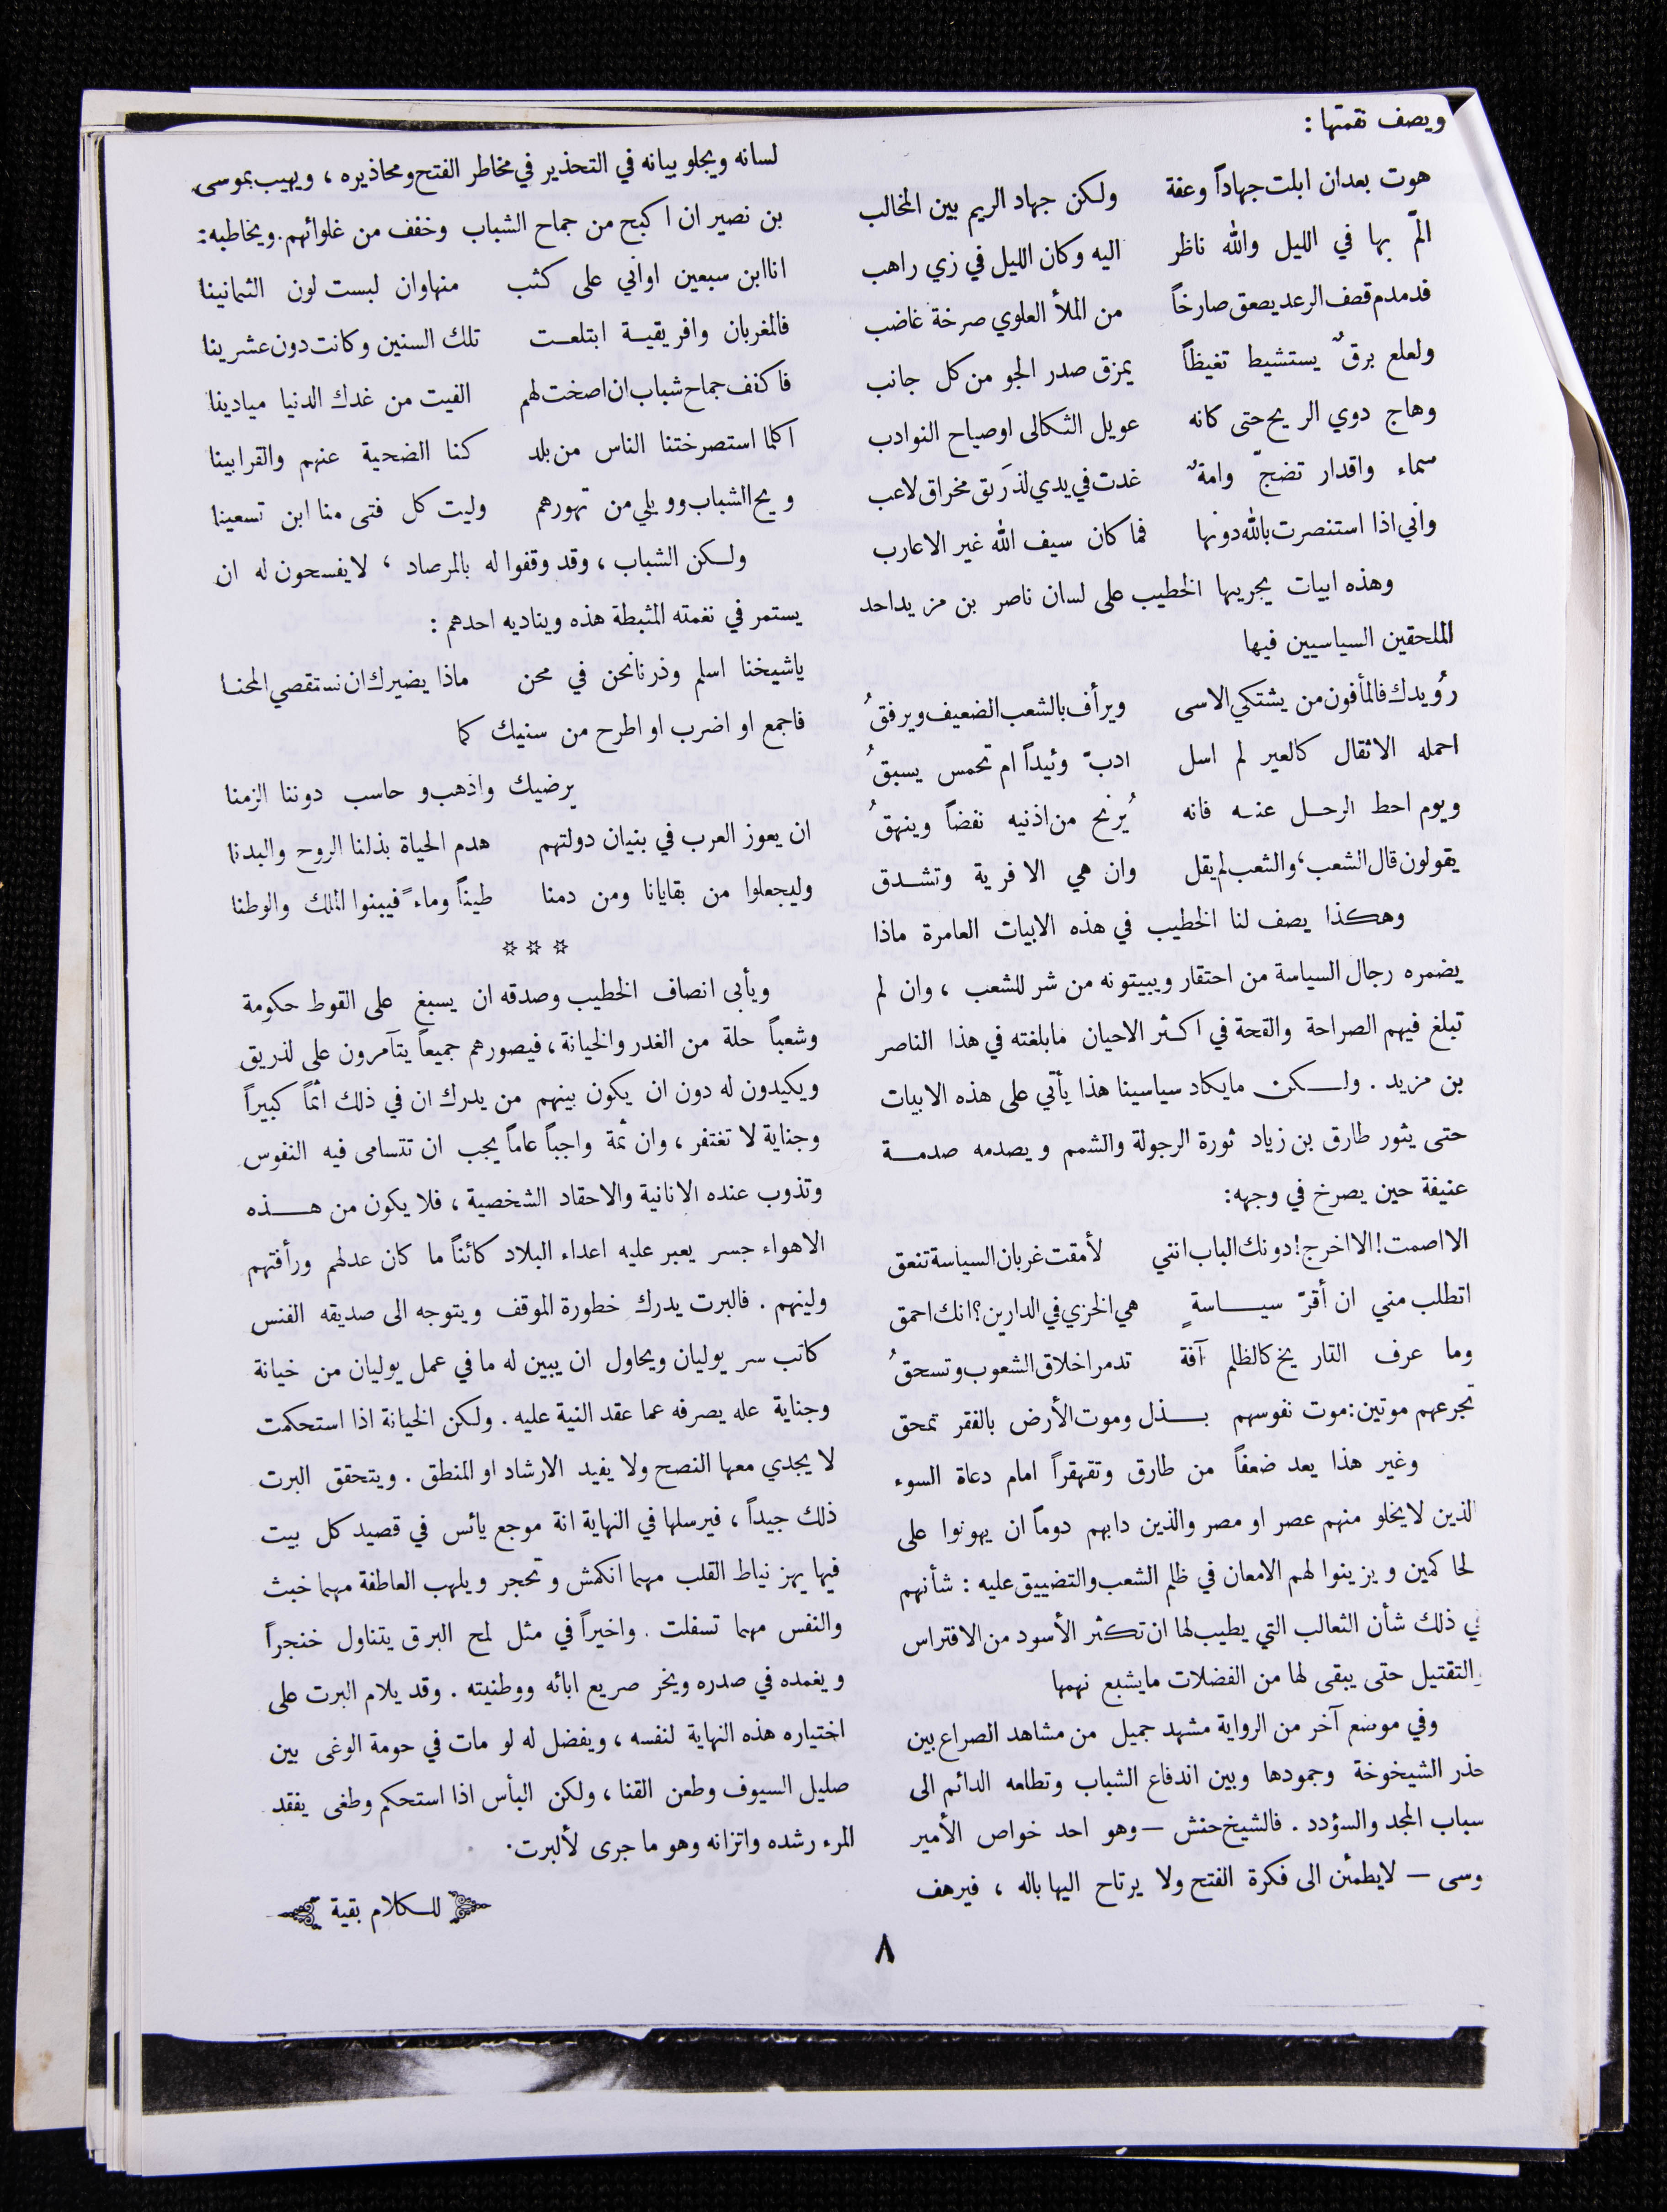 ويصف نقمتها :
هوت بعدان ابلت جهاداً وعفة ولكن جهاد الريم بين المخالب
المّ بها في الليل والله ناظر اليه وكان الليل في زي راهب
فدمدم قصف الرعد يصعق صارخاً من الملأ العلوي صرخة غاضب
ولعلع برقٌ يستشيط تغيظاً يمزق صدر الجو من كل جانب
وهاج دوي الريح حتى كانه عويل الثكالى اوصياح النوادب
سماء واقدار تضجّ وامةٌ غدت في يدي لذرَيق مخراق لاعب
واني اذا استنصرت بالله دونها فما كان سيف الله غير الاعارب
وهذه ابيات يجريها الخطيب على لسان ناصر بن مزيد احد
الملحقين السياسيين فيها
رُويدك فالمأفون من يشتكي الاسى ويرأف بالشعب الضعيف ويرفقُ
احمله الاثقال كالعير لم اسل ادبّ وئيداً ام تحمس يسبقُ
ويوم احط الرحل عنه فانه يُرنح من اذنيه نفضاً وينهقُ
يقولون قال الشعب، والشعب لم يقل وان هي الا فرية وتشدق
وهكذا يصف لنا الخطيب في هذه الابيات العامرة ماذا
يضمره رجال السياسة من احتقار ويبيتونه من شر للشعب ، وان لم
تبلغ فيهم الصراحة والقحة في اكثر الاحيان مابلغته في هذا الناصر
بن مزيد . ولكن مايكاد سياسينا هذا يأتي على هذه الابيات
حتى يثور طارق بن زياد ثورة الرجولة والشمم ويصدمه صدمة
عنيفة حين يصرخ في وجهه:
الا اصمت! الا اخرج! دونك الباب انني لأمقت غربان السياسة تنعق
اتطلب مني ان أقرّ سياسةٍ هي الخزي في الدارين؟ انك احمق
وما عرف التاريخ كالظلم آفة تدمر اخلاق الشعوب وتسحقُ
تجرعهم موتين: موت نفوسهم بذل وموت الأرض بالفقر تمحق
وغير هذا يعد ضعفاً من طارق وتقهقراً امام دعاة السوء
الذين لايخلو منهم عصر او مصر والذين دابهم دوماً ان يهونوا على
لحاكمين ويزينوا لهم الامعان في ظلم الشعب والتضييق عليه : شأنهم
في ذلك شأن الثعالب التي يطيب لها ان تكثر الأسود من الافتراس
والتقتيل حتى يبقى لها من الفضلات مايشبع نهمها
وفي موضع آخر من الرواية مشهد جميل من مشاهد الصراع بين
حذر الشيخوخة وجمودها وبين اندفاع الشباب وتطلعه الدائم الى
سباب المجد والسؤدد . فالشيخ حنش — وهو احد خواص الأمير
وسى — لايطمئن الى فكرة الفتح ولا يرتاح اليها باله ، فيرهف
لسانه ويجلو بيانه في التحذير في مخاطر الفتح ومحاذيره ، ويهيب بموسى
بن نصير ان اكبح من جماح الشباب وخفف من غلوائهم. ويخاطبه:
انا ابن سبعين اواني على كثب منها وان لبست لون الثمانينا
فالمغربان وافريقية ابتلعت تلك السنين وكانت دون عشرينا
فاكفف جماح شباب ان اصخت لهم الفيت من غدك الدنيا ميادينا
اكلما استصرختنا الناس من بلد كنا الضحية عنهم والقرابينا
ويح الشباب وويلي من تهورهم وليت كل فتى منا ابن تسعينا
ولكن الشباب ، وقد وقفوا له بالمرصاد ، لايفسحون له ان
يستمر في نغمته المثبطة هذه ويناديه احدهم :
ياشيخنا اسلم وذرنا نحن في محن ماذا يضيرك ان نستقصي المحنا
فاجمع او اضرب او اطرح من سنيك كما
يرضيك واذهب و حاسب دوننا الزمنا
ان يعوز العرب في بنيان دولتهم هدم الحياة بذلنا الروح والبدنا
وليجعلوا من بقايانا ومن دمنا طيناً وماءً فيبنوا الملك والوطنا
☆ ☆ ☆
ويأبى انصاف الخطيب وصدقه ان يسبغ على القوط حكومة
وشعباً حلة من الغدر والخيانة ، فيصورهم جميعاً يتآمرون على لذريق
ويكيدون له دون ان يكون بينهم من يدرك ان في ذلك اثماً كبيراً
وجناية لا تغتفر ، وان ثمة واجباً عاماً يجب ان تتسامى فيه النفوس
وتذوب عنده الانانية والاحقاد الشخصية ، فلا يكون من هذه
الاهواء جسر يعبر عليه اعداء البلاد كائناً ما كان عدلهم ورأفتهم
ولينهم . فالبرت يدرك خطورة الموقف ويتوجه الى صديقه الفنس
كاتب سر يوليان ويحاول ان يبين له ما في عمل يوليان من خيانة
وجناية عله يصرفه عما عقد النية عليه . ولكن الخيانة اذا استحكمت
لا يجدي معها النصح ولا يفيد الارشاد او المنطق . ويتحقق البرت
ذلك جيداً ، فيرسلها في النهاية انة موجع يائس في قصيد كل بيت
فيها يهز نياط القلب مهما انكمش وتحجر ويلهب العاطفة مهما خبث
والنفس مهما تسفلت . واخيراً في مثل لمح البرق يتناول خنجراً
ويغمده في صدره ويخر صريع ابائه ووطنيته . وقد يلام البرت على
اختياره هذه النهاية لنفسه ، ويفضل له لو مات في حومة الوغى بين
صليل السيوف وطعن القنا ، ولكن اليأس اذا استحكم وطغى يفقد
المرء رشده واتزانه وهو ما جرى لألبرت.
للكلام بقية
٨